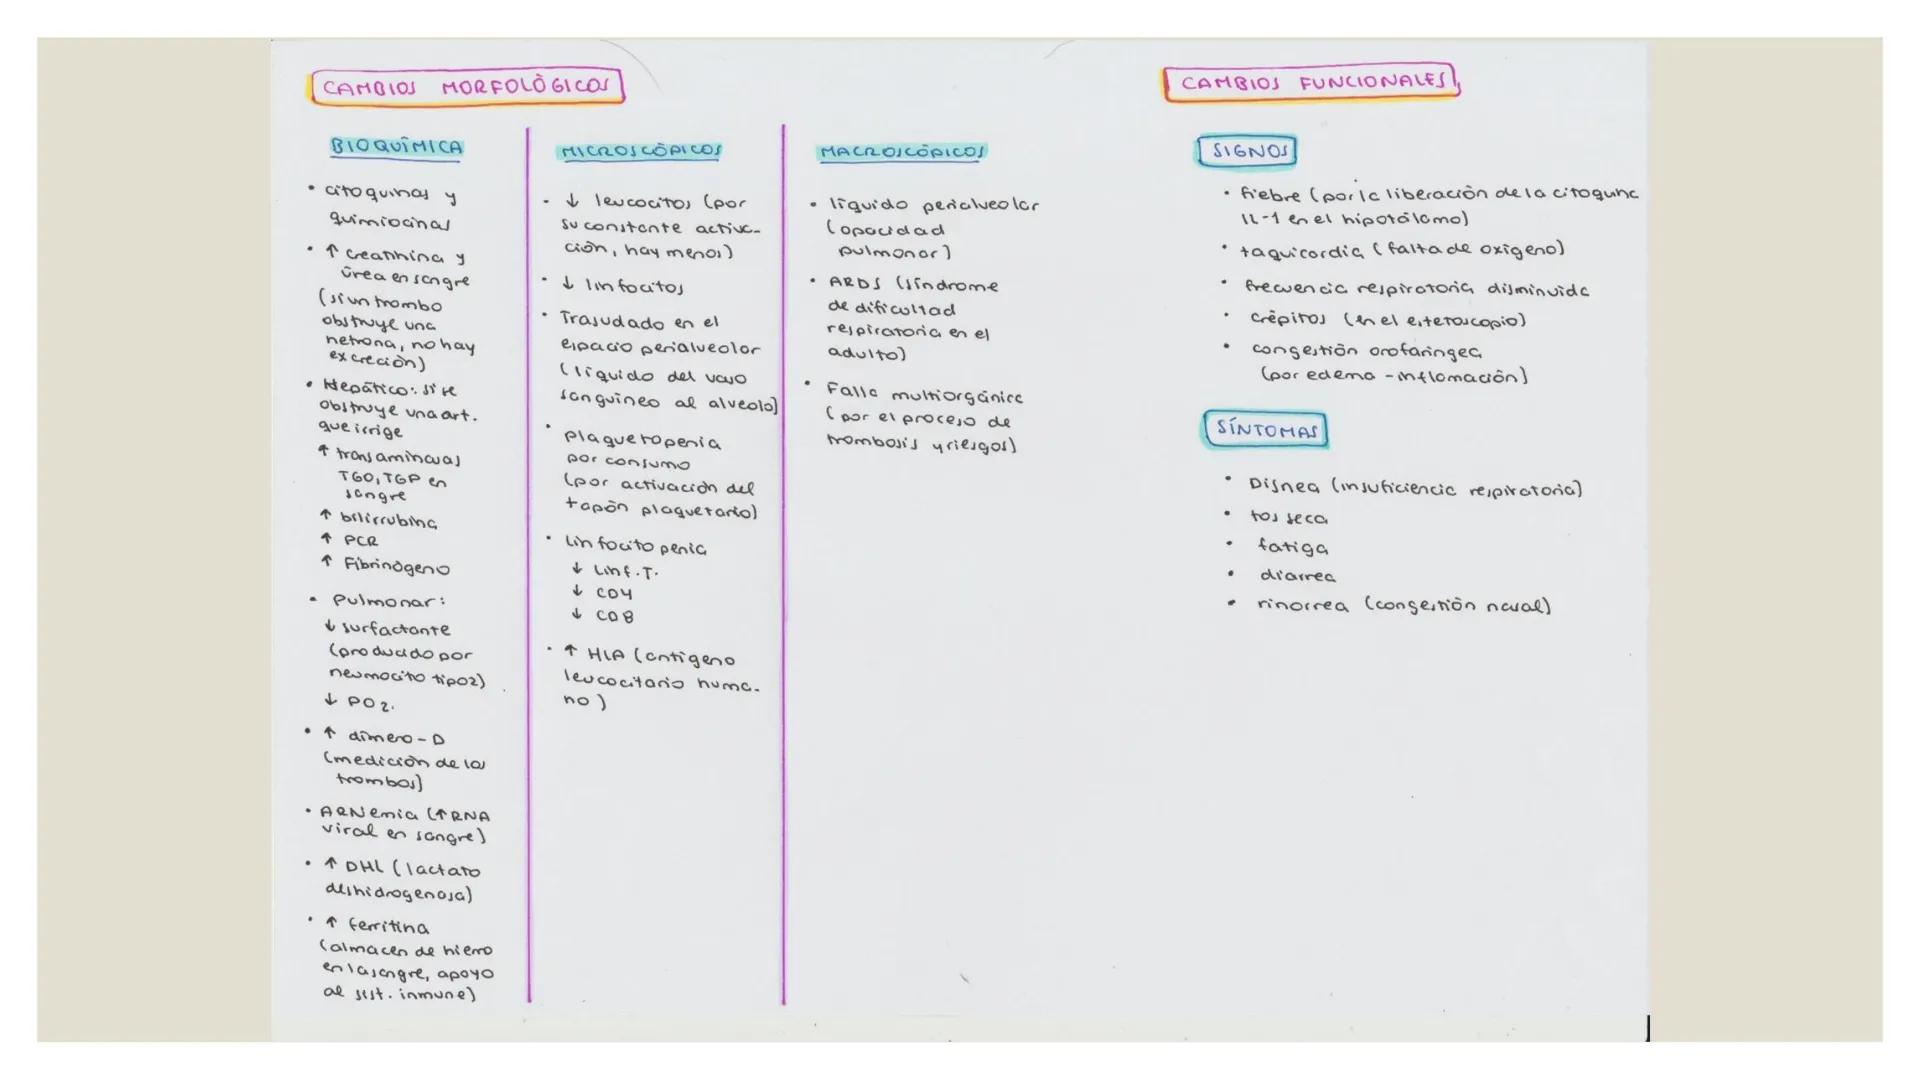 CAMBIOS MORFOLÓGICOS
BIOQUÍMICA
• citoquinas y
quimiocinas
• ↑ creatinina y
úrea en sangre
(si un trombo
obstruye una
nefrona, no hay
excreción)
• Hepático: si se
obstruye una art.
que irrige
↑ transaminasas
TGO, TGP en
sangre
↑ bilirrubina
↑ PCR
↑ Fibrinógeno
• Pulmonar:
↓ surfactante
(producido por
neumocito tipo2)
↓ PO2.
• ↑ dímero-D
(medición de los
trombos)
• ARNemia (↑RNA
viral en sangre)
• ↑ DHL (lactato
deshidrogenasa)
• ↑ ferritina
(almacen de hierro
en la sangre, apoyo
al sist. inmune)
MICROSCÓPICOS
• ↓ leucocitos (por
su constante activa-
ción, hay menos)
• ↓ linfocitos
• Trasudado en el
espacio perialveolar
(líquido del vaso
sanguíneo al alveolo)
• plaquetopenia
por consumo
(por activación del
tapón plaquetario)
• Linfocitopenia
↓ Linf. T.
↓ CD4
↓ CD8
• ↑ HLA (antígeno
leucocitario huma-
no)
MACROSCÓPICOS
• líquido perialveolar
(opacidad
pulmonar)
• ARDS (síndrome
de dificultad
respiratoria en el
adulto)
• Falla multiorgánica
(por el proceso de
trombosis y riesgos)
CAMBIOS FUNCIONALES
SIGNOS
• fiebre (por la liberación de la citoquina
IL-1 en el hipotálamo)
• taquicardia (falta de oxígeno)
• frecuencia respiratoria disminuida
• crépitos (en el estetoscopio)
• congestión orofaríngea
(por edema - inflamación)
SÍNTOMAS
• Disnea (insuficiencia respiratoria)
• tos seca
• fatiga
• diarrea
• rinorrea (congestión nasal)